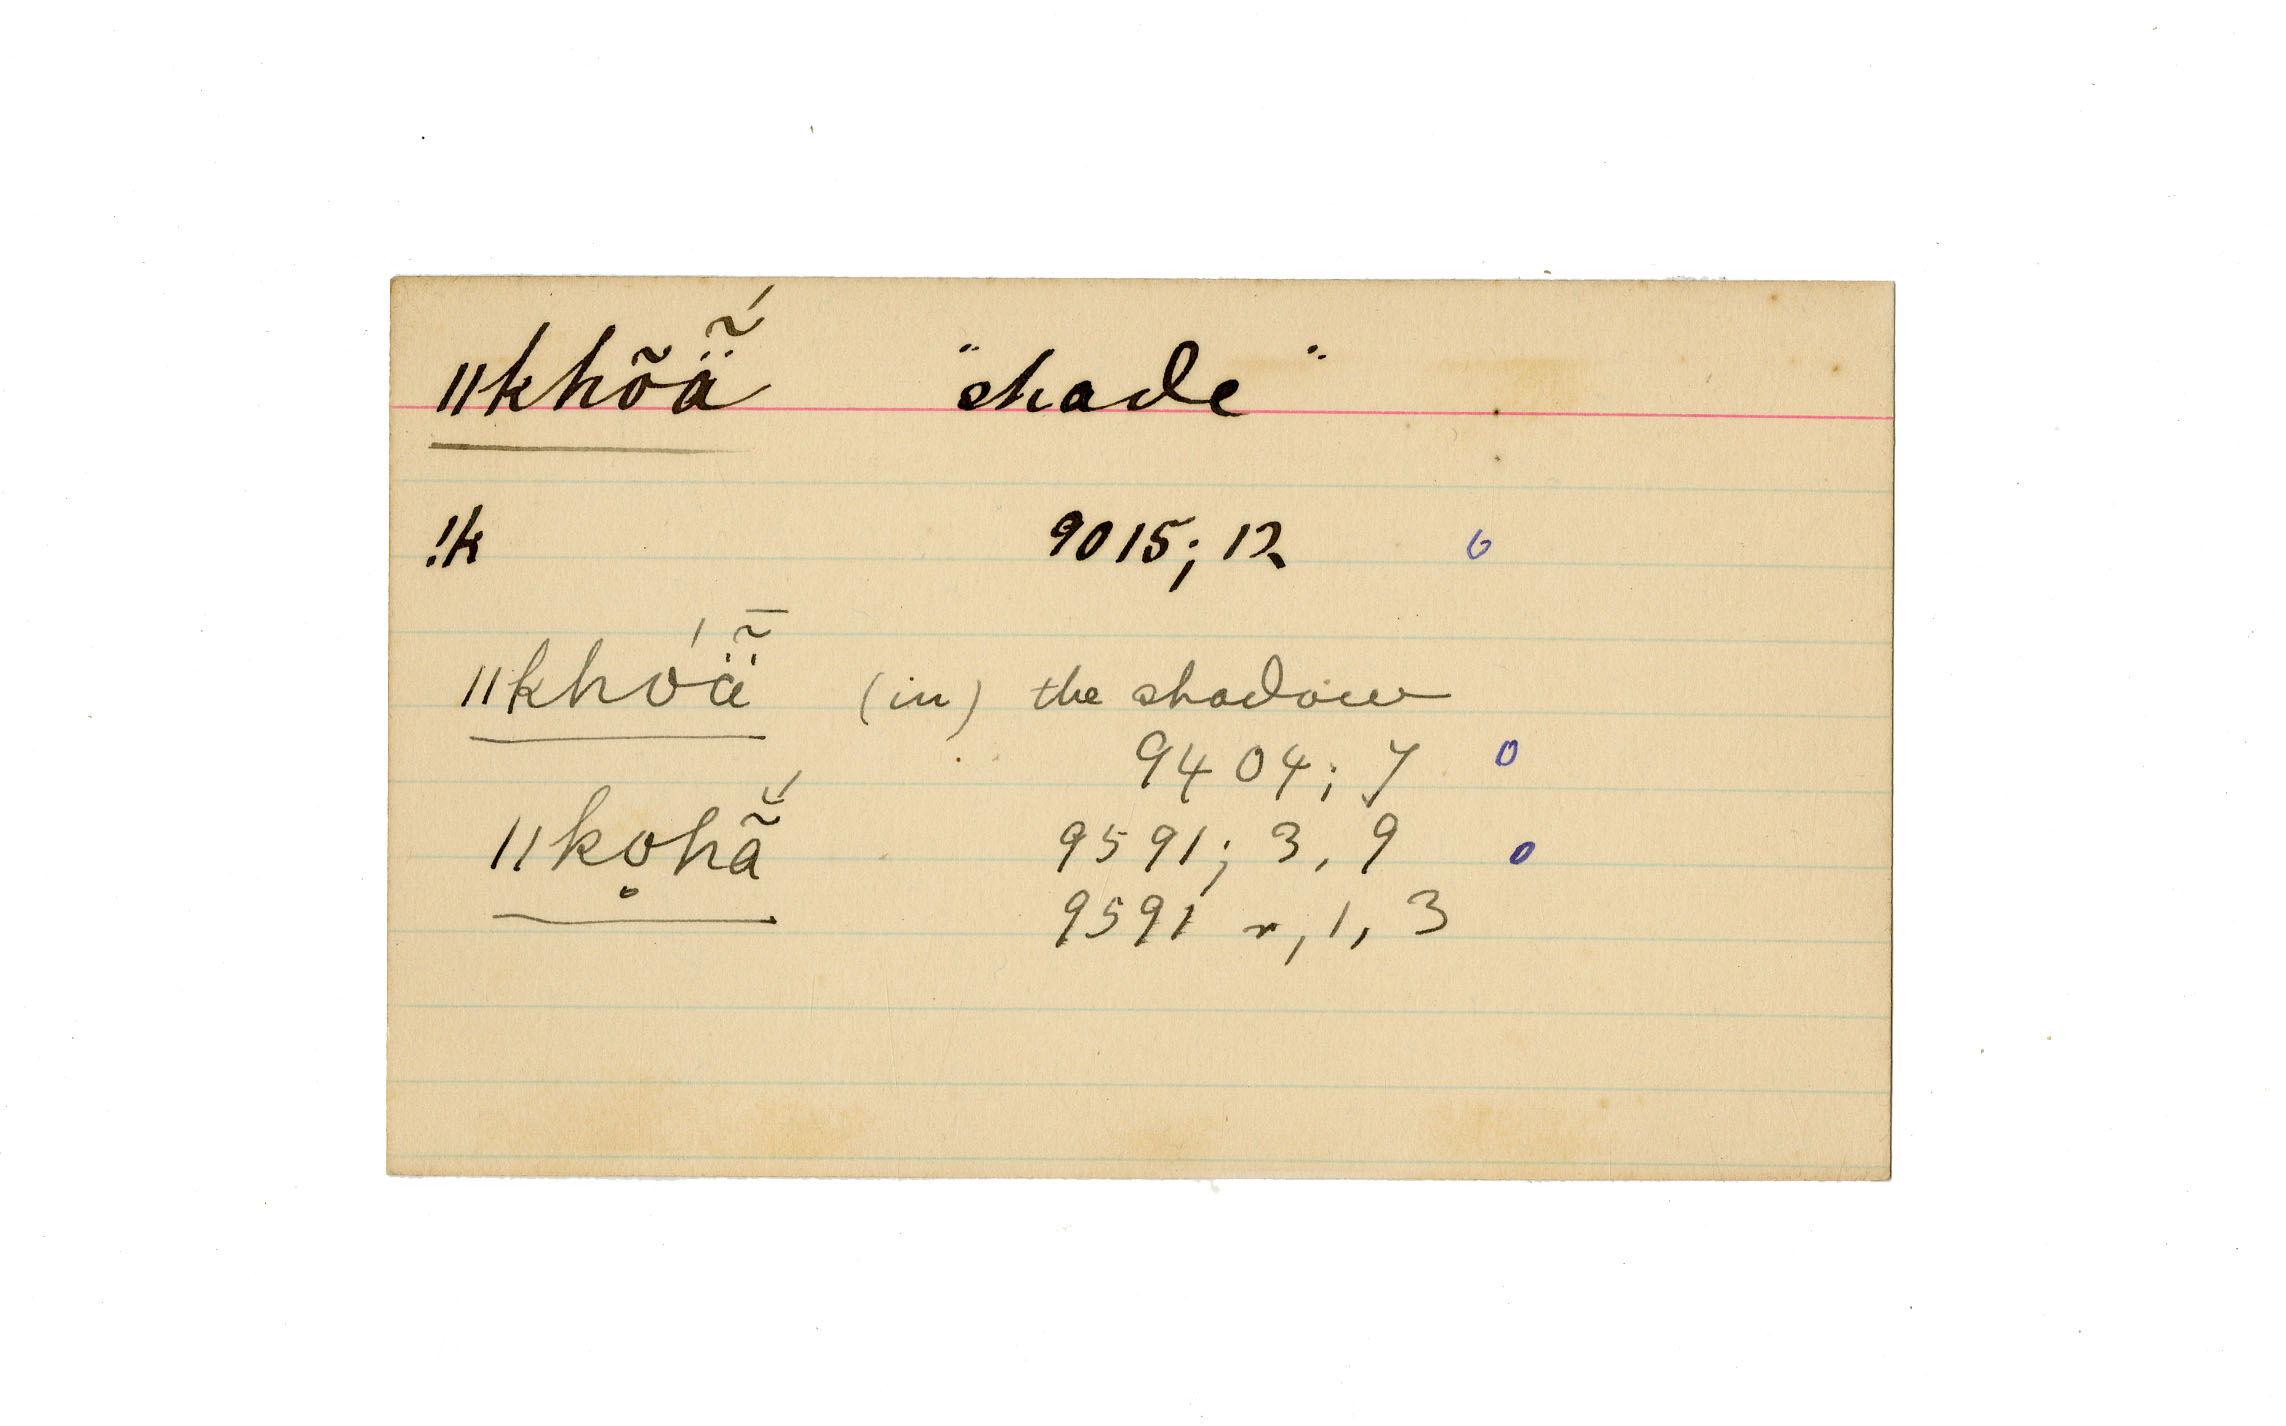 ǁkhõä̃́ "shade"
!k 9015; 12 o
ǁkhóä̃̄ (in) the shadow
9404; 7 o
ǁko̥hã̆́ 9591; 3, 9 o
9591 r, 1, 3